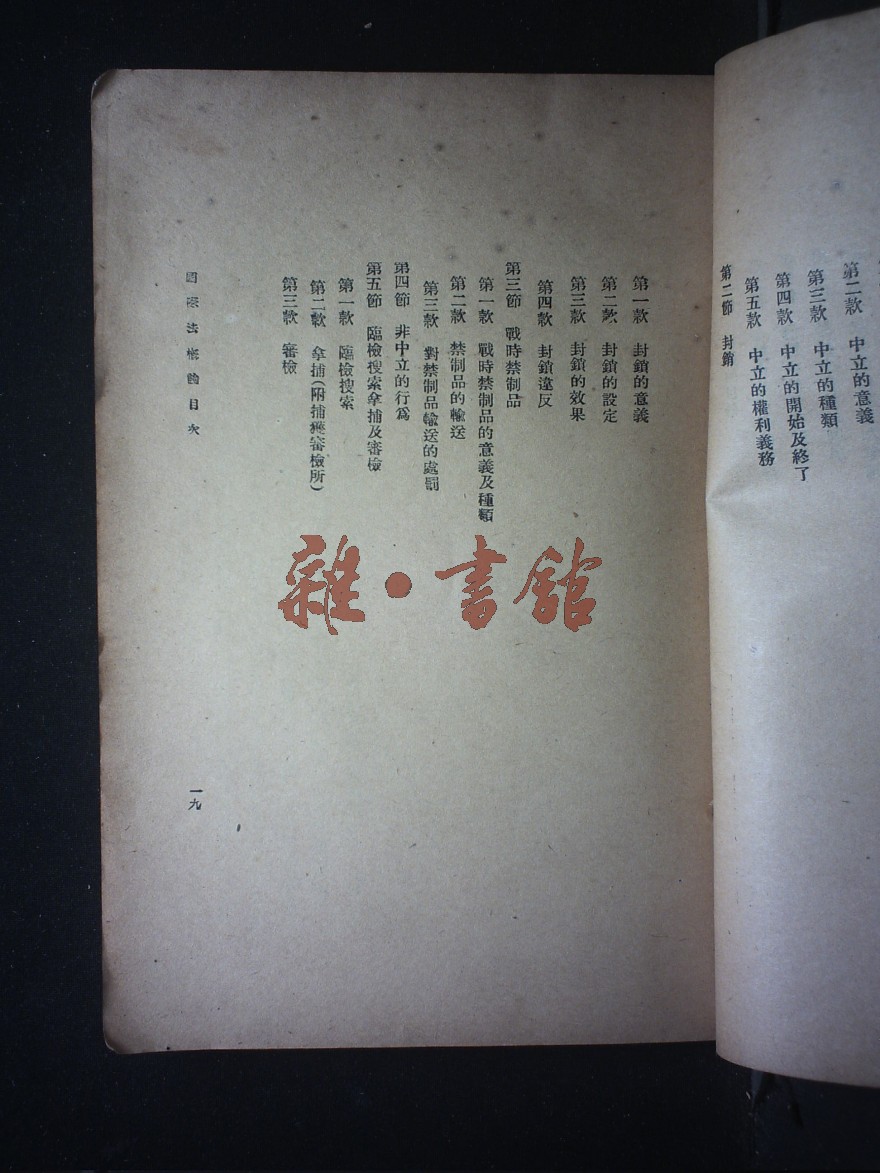 第二款 中立的意義
第三款 中立的種類
第四款 中立的開始及終了
第五款 中立的權利義務
第二節 封鎖
第一款 封鎖的意義
第二款 封鎖的設定
第三款 封鎖的效果
第四款 封鎖違反
第三節 戰時禁制品
第一款 戰時禁制品的意義及種類
第二款 禁制品的輸送
第三款 對禁制品輸送的處罰
第四節 非中立的行爲
第五節 臨檢搜索拿捕及審檢
第一款 臨檢搜索
第二款 拿捕(附捕獲審檢所)
第三款 審檢
國際法概論目次
一九
雜•書館